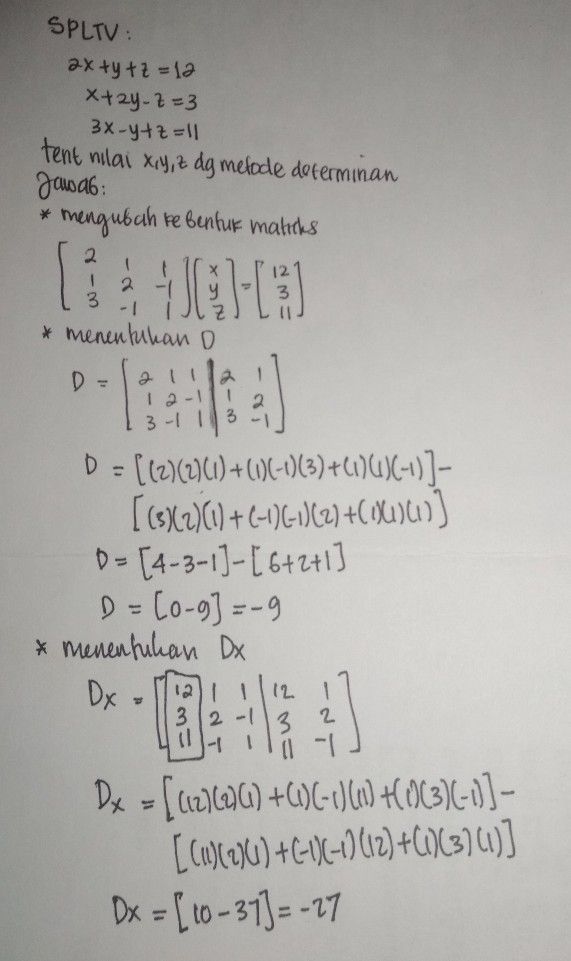 SPLTV :
2x+y+z=12
x+2y-z=3
3x-y+z=11
tent nilai x,y,z dg metode determinan
Jawab:
* mengubah ke bentuk matriks
[2 1 1] [x] = [12]
[1 2 -1] [y] [3]
[3 -1 1] [z] [11]
* menentukan D
D = [2 1 1 | 2 1]
[1 2 -1 | 1 2]
[3 -1 1 | 3 -1]
D = [(2)(2)(1)+(1)(-1)(3)+(1)(1)(-1)]-
[(3)(2)(1)+(-1)(-1)(2)+(1)(1)(1)]
D = [4-3-1]-[6+2+1]
D = [0-9] = -9
* menentukan Dx
Dx = [12 1 1 | 12 1]
[3 2 -1 | 3 2]
[11 -1 1 | 11 -1]
Dx = [(12)(2)(1)+(1)(-1)(11)+(1)(3)(-1)]-
[(11)(2)(1)+(-1)(-1)(12)+(1)(3)(1)]
Dx = [10-37] = -27